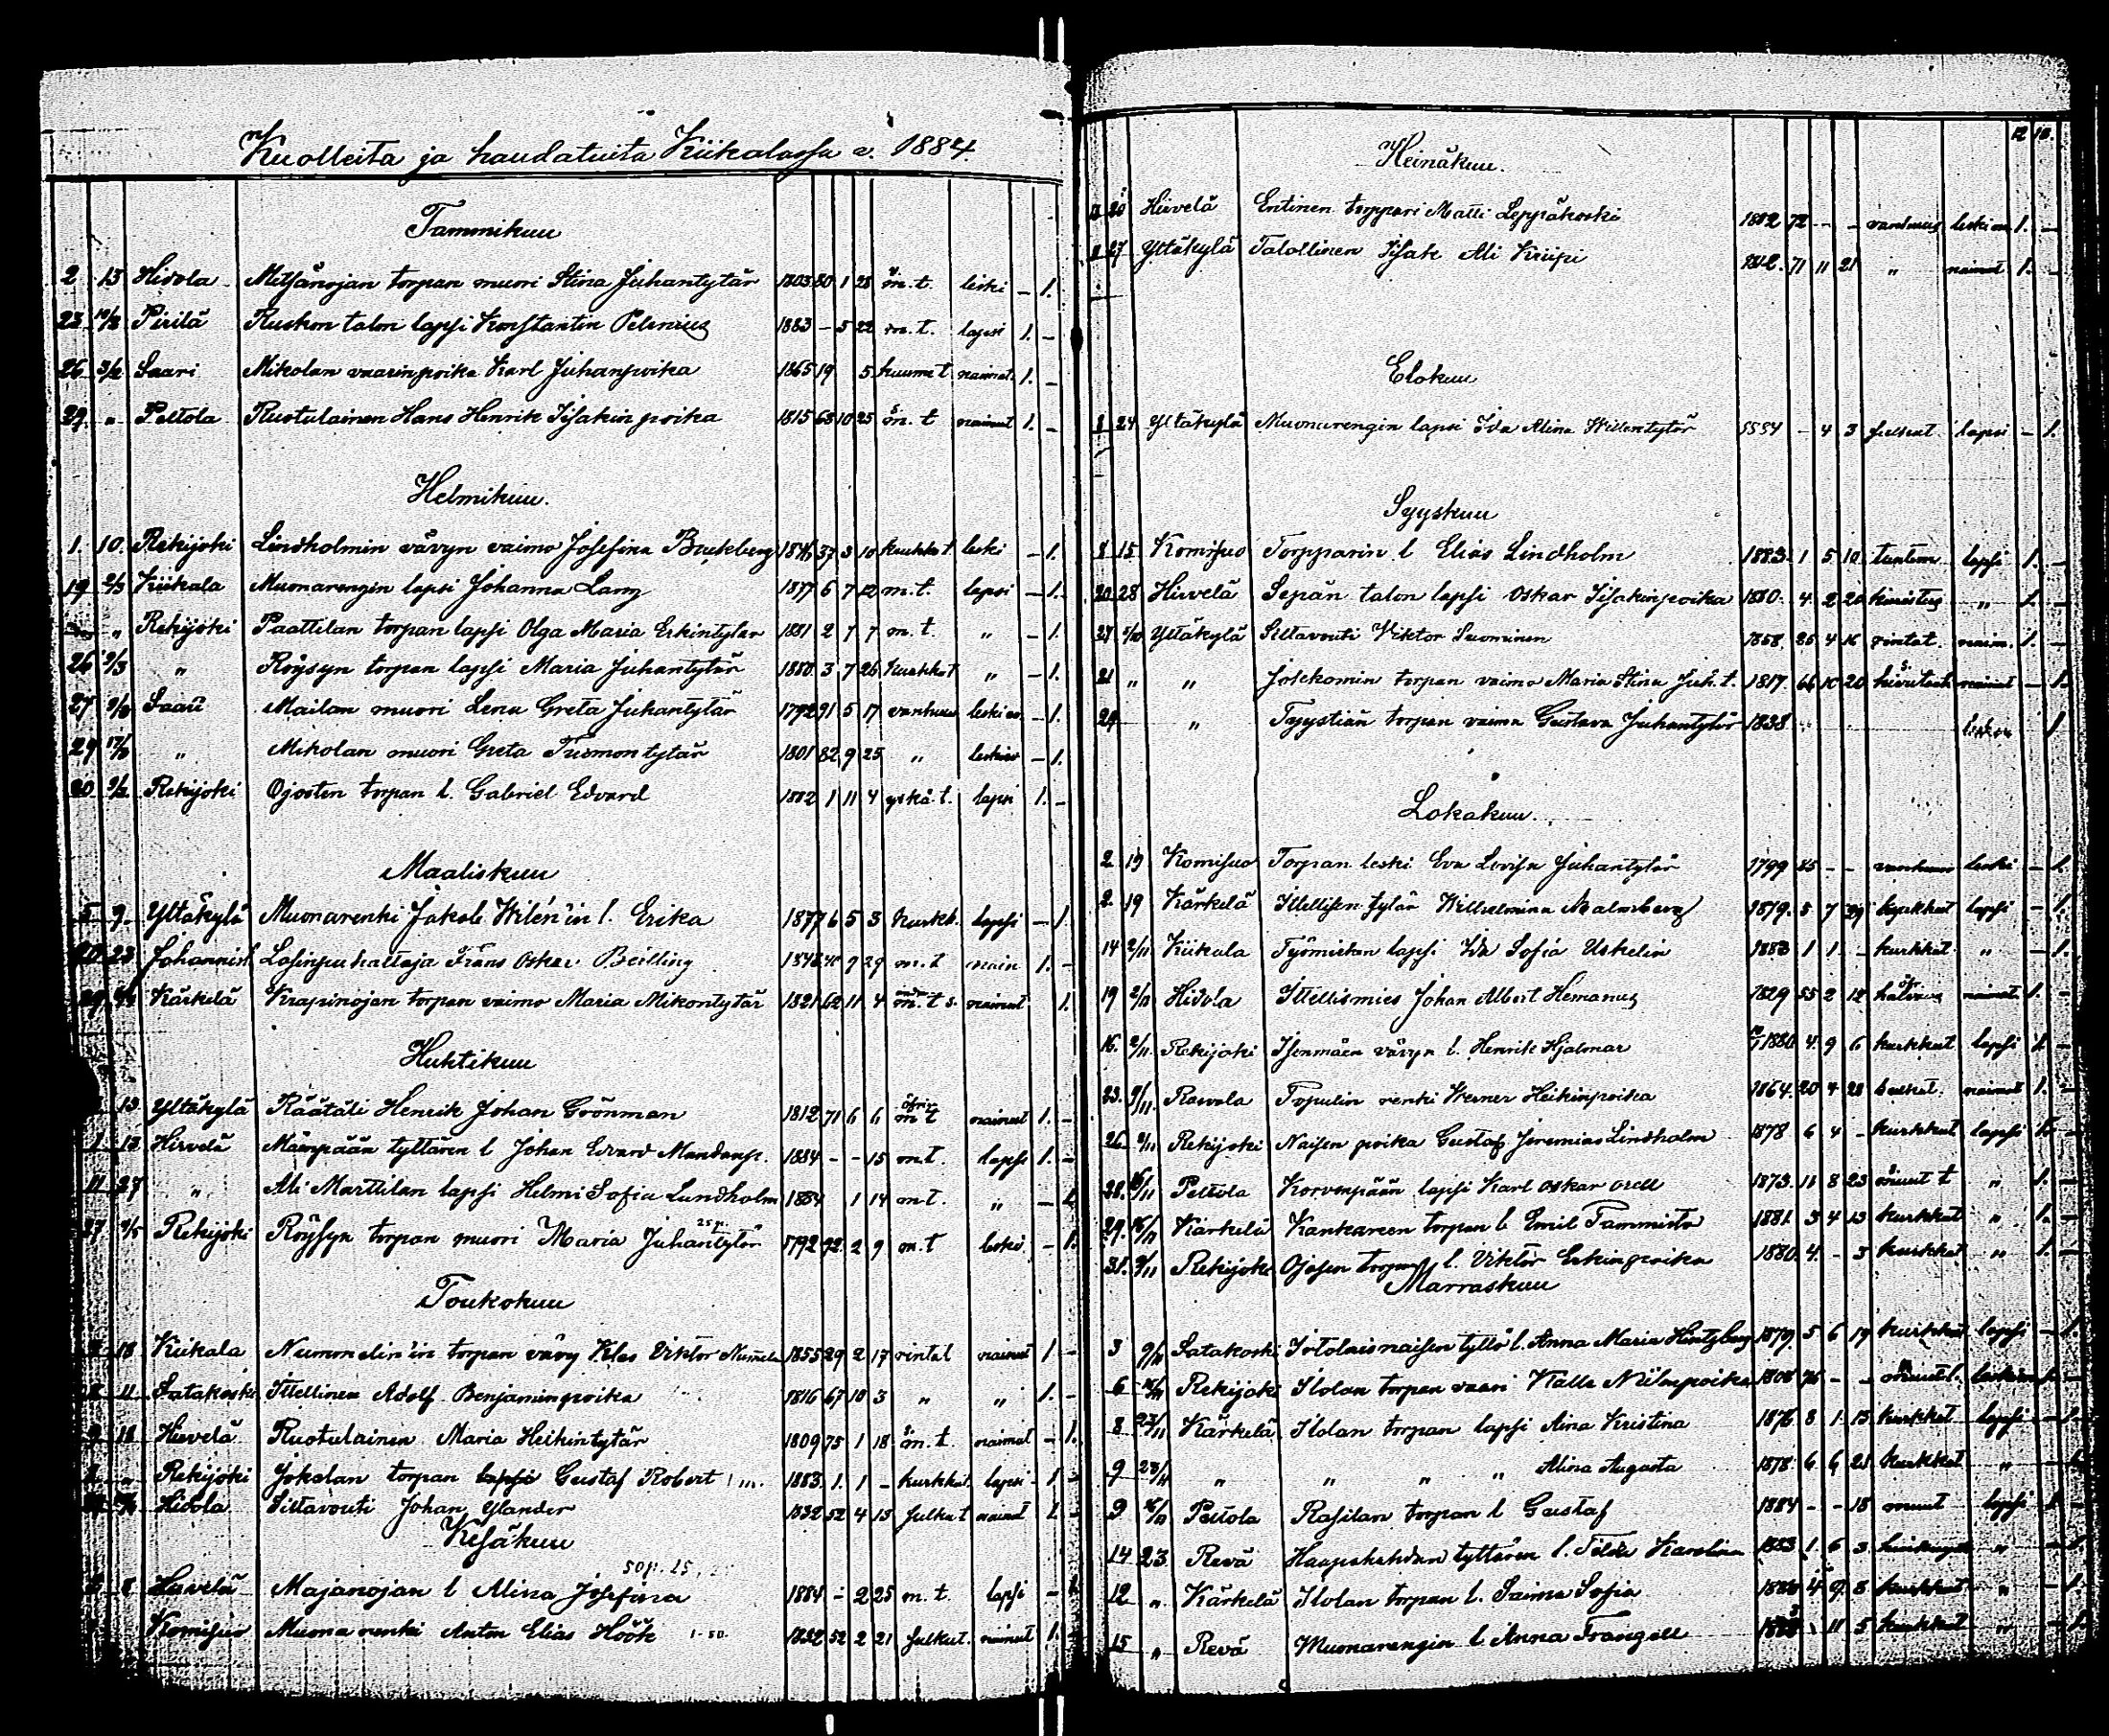 Kuolleita ja haudatuita Kiikalassa v. 1884.
Tammikuu
2 13 Hidola Metsänojan torpan muori Stina Juhantytär 1803 80 1 28 m. t. leski – 1.
23 10/2 Pirilä Ruskon talon lapsi Konstantin Pelenius 1883 – 5 22 m. t. lapsi 1. –
26 3/2 Saari Mikolan vaarinpoika Karl Juhanpoika 1865 19 5 kuume t. naimat. 1. –
29 „ Peltola Ruotulainen Hans Henrik Iisakin poika 1815 68 10 25 m. t naimut 1. –
Helmikuu.
1. 10. Rekijoki Lindholmin vävyn vaimo Josefina Buckberg 1846 37 3 10 keuhko t leski – 1.
19 2/3 Kiikala Muonarengin lapsi Johanna Lang 1877 6 7 12 m. t. lapsi – 1.
„ Rekijoki Paattilan torpan lapsi Olga Maria Erkintytär 1881 2 7 7 m. t. „ – 1.
26 9/3 „ Röysyn torpan lapsi Maria Juhantytär 1880. 3 7 26 kurkkut „ – 1.
27 9/3 Saari Mailan muori Lena Greta Juhantytär 1792 91 5 17 vanhuus leski – 1.
29 „ Mikolan muori Greta Tuomontytär 1801 82 9 25 „ – 1.
20 Rekijoki Ojosten torpan l. Gabriel Edvard 1882 1 11 4 yskä. t. lapsi 1. –
Maaliskuu
5 9. Yltäkylä Muonarenki Jakob Wilén'in l. Erika 1877 6 5 3 kurkk. lapsi – 1.
23 Johannisl. Lasinpuhaltaja Frans Oskar Beilling 9 29 m. t nain 1. –
Kärkelä Krapinojan torpan vaimo Maria Mikontytär 1821 62 11 4 m. t. s. naimut 1.
Huhtikuu
13 Yltäkylä Räätäli Henrik Johan Grönman 1812 71 6 6 m t naimut 1. –
1 13 Hirvelä Mäenpään tyttären l Johan Edvard 1884 – – 15 m. t. lapsi 1. –
11 27 „ Ali Marttilan lapsi Helmi Sofia Lundholm 1884 1 14 m. t. „ – 1.
27 Rekijoki Röysyn torpan muori Maria Juhantytär 25 p. 1792 92. 2 9 m. t leski. – 1.
Toukokuu
18 Kiikala Nummelin'in torpan vävy Klas Viktor 1855 29 2 17 rintat naimut 1 –
11 Satakoski Itellinen Adolf Benjaminpoika 1816 67 10 3 „ „ 1. –
18 Hirvelä Ruotulainen Maria Heikintytär 1809 75 1 18 m. t. naimat – 1.
„ Rekijoki Jokelan torpan Gustaf Robert 1883. 1. 1 – kurkkut. lapsi 1 –
Hidola Siltavouti Johan Ylander 1832 52 4 13 Julkut naimut 1. –
Kesäkuu
50 p. 25
8 Hirvelä Majanojan l Alina Josefina 1884 – 2 25 m. t. lapsi – 1.
Komisuo Muona renki Anton Elias Höök 1-50. 1832 52 2 21 Julkut. naimut 1. –
12 18.
Heinäkuu.
20 Hirvelä Entinen torppari Matti Leppäkoski 1812 72 – – vanhuus leskim. 1. –
27 Yltäkylä Talollinen Isak Ali Kriipi 1812. 71 11 21 „ naimut 1. –
Elokuu
24 Yltäkylä Muonarengin lapsi Ida Alina Willentytär 1884 – 4 3 Julkut. lapsi – 1.
Syyskuu
15. Komisuo Torpparin l Elias Lindholm 1883. 1 5 10 tuntem lapsi 1. –
20 28 Hirvelä Sepän talon lapsi Oskar Iisakinpoika 1880. 4 2 20 kuristus „ 1. –
27 5/10 Yltäkylä Siltavouti Viktor Suominen 1858. 25 4 16 rintat. naim. 1. –
21 „ „ Jokkomin torpan vaimo Maria Stina Juh. t. 1817. 66 10 20 naimut – 1.
29 „ Tyystiän torpan vaimo Gustava Juhantytär 1838 1
Lokakuu.
2 19 Komisuo Torpan leski Eva Lovisa Juhantytär 1799 85 – – vanhuus leski – 1.
2 19 Kärkelä Itellisen tytär Wilhelmina Malmberg 1879. 5 7 29 kurkkut lapsi – 1.
14 2/11 Kiikala Työmiehen lapsi Ida Sofia Uskelin 1883 1 1. – kurkkut. „ – 1.
19 2/11 Hidola Itellismies Johan Albert Hemanus 1829 55 2 12 naimut. 1. –
16. 2/11. Rekijoki Isenmäen vävyn l. Henrik Hjalmar 1880 4. 9 6 kurkkut lapsi 1. –
23. 9/11. Rasvala Topulin renki Werner Heikinpoika 1864. 20 4 28 naimat 1. –
26. 9/11 Rekijoki Naisen poika Gustaf Jeremias Lindholm 1878 6 4 – kurkkut lapsi 1. –
28. 16/11 Peltola Korvenpään lapsi Karl Oskar 1873. 11 8 23 muut t „ 1. –
29. 16/11 Kärkelä Kankareen torpan l. Emil Tammisto 1881. 3 4 13 kurkkut „ 1. –
31. 9/11 Rekijoki Ojosen torpan l. Viktor Erkinpoika 1880. 4. – 3 kurkkut „ 1. –
Marraskuu
3 9/11 Satakoski Itolaisnaisen tyttö l. Anna Maria Hintzberg 1879. 5 6 19 kurkkut lapsi – 1.
6 16/11 Rekijoki Ilolan torpan vaari Kalle Niilonpoika 1808 76 – –
8 23/11 Kärkelä Ilolan torpan lapsi Aina Kristina 1876 8 1. 15 kurkkut lapsi – 1.
9 23/11 „ „ „ „ Alina Augusta 1878. 6 6 21 kurkkut „ – 1.
9 16/11 Peltola Rasilan torpan l Gustaf 1884 – – 18 muut lapsi 1. –
14 23. Revä Haapalehdon tyttären l. Tilda Karolina 1883 1. 6 3 „ – 1.
12 „ Kärkelä Ilolan torpan l. Saima Sofia 4 9 8 kurkkut „ – 1.
15 „ Revä Muonarengin l Anna Frangell 11 5 kurkkut „ – 1.